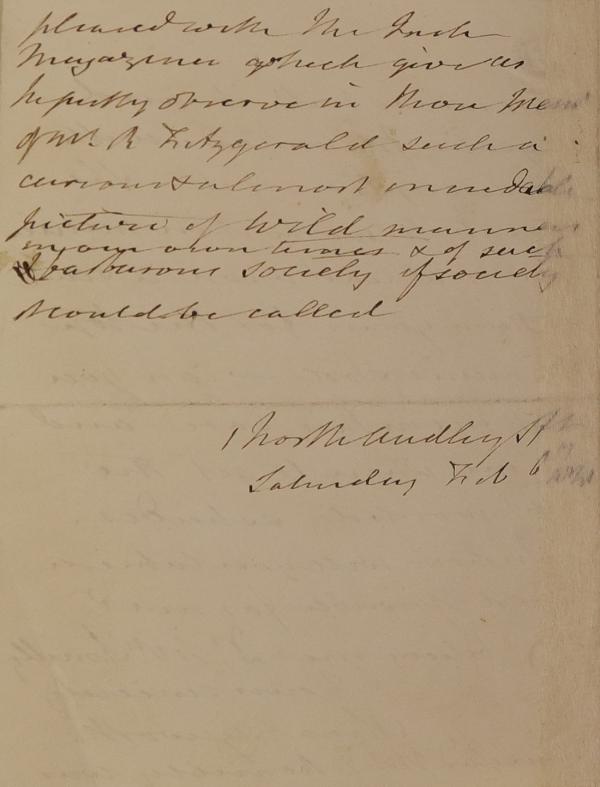 pleased with the Irish
Magazines which give as
he justly observe in those Mem
of Mr. R Fitzgerald such a
curious & almost incredable
picture of wild manners
in our own times & of such
barbarous society if society
it could be called
1 North Audley St
Saturday Feb 6